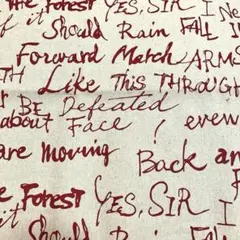 The Forest YES, SIR I Ne
f it Should Rain FALL I
Forward March ARMS
TH Like This THROUGH
BE Defeated
about Face ! even
are moving Back an
e Forest YES, SIR I
it Should Rain FALL